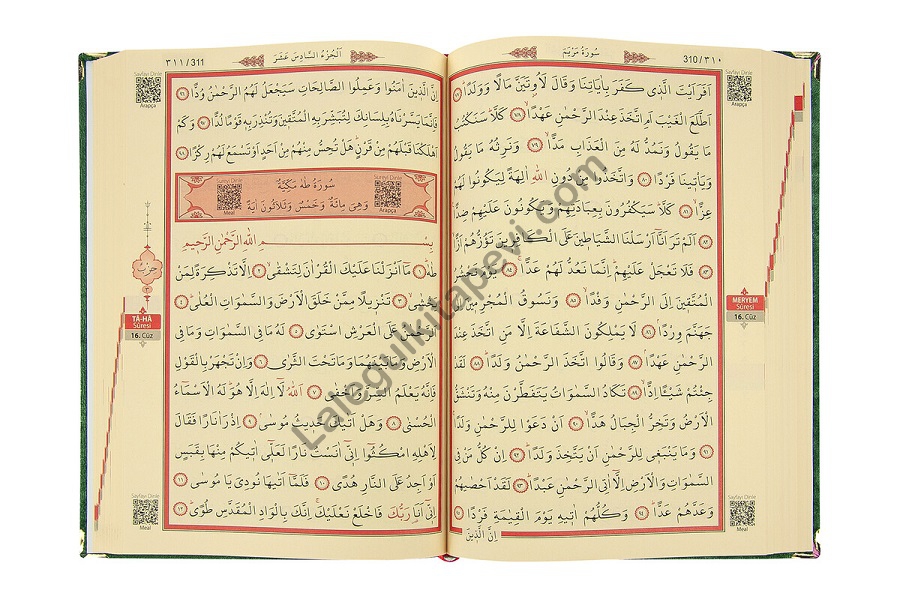 سُورَةُ مَرْيَمَ
310/٣١٠
Sayfayı Dinle
Arapça
اَفَرَاَيْتَ الَّذ۪ي كَفَرَ بِاٰيَاتِنَا وَقَالَ لَاُو۫تَيَنَّ مَالًا وَوَلَدًاۜ ﴿٧٧﴾
اَطَّلَعَ الْغَيْبَ اَمِ اتَّخَذَ عِنْدَ الرَّحْمٰنِ عَهْدًاۙ ﴿٧٨﴾ كَلَّاۜ سَنَكْتُبُ
مَا يَقُولُ وَنَمُدُّ لَهُ مِنَ الْعَذَابِ مَدًّاۙ ﴿٧٩﴾ وَنَرِثُهُ مَا يَقُولُ
وَيَأْت۪ينَا فَرْدًا ﴿٨٠﴾ وَاتَّخَذُوا مِنْ دُونِ اللّٰهِ اٰلِهَةً لِيَكُونُوا لَهُمْ
عِزًّاۙ ﴿٨١﴾ كَلَّاۜ سَيَكْفُرُونَ بِعِبَادَتِهِمْ وَيَكُونُونَ عَلَيْهِمْ ضِدًّا۟
﴿٨٢﴾ اَلَمْ تَرَ اَنَّٓا اَرْسَلْنَا الشَّيَاط۪ينَ عَلَى الْكَافِر۪ينَ تَؤُزُّهُمْ اَزًّاۙ
﴿٨٣﴾ فَلَا تَعْجَلْ عَلَيْهِمْۜ اِنَّمَا نَعُدُّ لَهُمْ عَدًّاۚ ﴿٨٤﴾ يَوْمَ نَحْشُرُ
الْمُتَّق۪ينَ اِلَى الرَّحْمٰنِ وَفْدًاۙ ﴿٨٥﴾ وَنَسُوقُ الْمُجْرِم۪ينَ اِلٰى
جَهَنَّمَ وِرْدًاۢ ﴿٨٦﴾ لَا يَمْلِكُونَ الشَّفَاعَةَ اِلَّا مَنِ اتَّخَذَ عِنْدَ
الرَّحْمٰنِ عَهْدًاۢ ﴿٨٧﴾ وَقَالُوا اتَّخَذَ الرَّحْمٰنُ وَلَدًاۜ ﴿٨٨﴾ لَقَدْ
جِئْتُمْ شَيْـًٔا اِدًّاۙ ﴿٨٩﴾ تَكَادُ السَّمٰوَاتُ يَتَفَطَّرْنَ مِنْهُ وَتَنْشَقُّ
الْاَرْضُ وَتَخِرُّ الْجِبَالُ هَدًّاۙ ﴿٩٠﴾ اَنْ دَعَوْا لِلرَّحْمٰنِ وَلَدًاۚ
﴿٩١﴾ وَمَا يَنْبَغ۪ي لِلرَّحْمٰنِ اَنْ يَتَّخِذَ وَلَدًاۜ ﴿٩٢﴾ اِنْ كُلُّ مَنْ فِي
السَّمٰوَاتِ وَالْاَرْضِ اِلَّٓا اٰتِي الرَّحْمٰنِ عَبْدًاۜ ﴿٩٣﴾ لَقَدْ اَحْصٰيهُمْ
وَعَدَّهُمْ عَدًّاۜ ﴿٩٤﴾ وَكُلُّهُمْ اٰت۪يهِ يَوْمَ الْقِيٰمَةِ فَرْدًا ﴿٩٥﴾
اِنَّ الَّذ۪ينَ
MERYEM
Sûresi
16. Cüz
Sayfayı Dinle
Meal
٣١١/311
اَلْجُزْءُ السَّادِسَ عَشَرَ
Sayfayı Dinle
Arapça
اِنَّ الَّذ۪ينَ اٰمَنُوا وَعَمِلُوا الصَّالِحَاتِ سَيَجْعَلُ لَهُمُ الرَّحْمٰنُ وُدًّا ﴿٩٦﴾
فَاِنَّمَا يَسَّرْنَاهُ بِلِسَانِكَ لِتُبَشِّرَ بِهِ الْمُتَّق۪ينَ وَتُنْذِرَ بِه۪ قَوْمًا لُدًّا ﴿٩٧﴾ وَكَمْ
اَهْلَكْنَا قَبْلَهُمْ مِنْ قَرْنٍۜ هَلْ تُحِسُّ مِنْهُمْ مِنْ اَحَدٍ اَوْ تَسْمَعُ لَهُمْ رِكْزًا ﴿٩٨﴾
Sureyi Dinle
Arapça
سُورَةُ طٰهٰ مَكِّيَّةٌ
وَهِيَ مِائَةٌ وَخَمْسٌ وَثَلَاثُونَ اٰيَةً
Sureyi Dinle
Meal
بِسْمِ اللّٰهِ الرَّحْمٰنِ الرَّح۪يمِ
طٰهٰۜ ﴿١﴾ مَٓا اَنْزَلْنَا عَلَيْكَ الْقُرْاٰنَ لِتَشْقٰىۙ ﴿٢﴾ اِلَّا تَذْكِرَةً لِمَنْ
يَخْشٰىۙ ﴿٣﴾ تَنْز۪يلًا مِمَّنْ خَلَقَ الْاَرْضَ وَالسَّمٰوَاتِ الْعُلٰىۜ ﴿٤﴾
اَلرَّحْمٰنُ عَلَى الْعَرْشِ اسْتَوٰى ﴿٥﴾ لَهُ مَا فِي السَّمٰوَاتِ وَمَا فِي
الْاَرْضِ وَمَا بَيْنَهُمَا وَمَا تَحْتَ الثَّرٰى ﴿٦﴾ وَاِنْ تَجْهَرْ بِالْقَوْلِ
فَاِنَّهُ يَعْلَمُ السِّرَّ وَاَخْفٰى ﴿٧﴾ اَللّٰهُ لَٓا اِلٰهَ اِلَّا هُوَۜ لَهُ الْاَسْمَٓاءُ
الْحُسْنٰى ﴿٨﴾ وَهَلْ اَتٰيكَ حَد۪يثُ مُوسٰىۢ ﴿٩﴾ اِذْ رَاٰ نَارًا فَقَالَ
لِاَهْلِهِ امْكُثُٓوا اِنّ۪ٓي اٰنَسْتُ نَارًا لَعَلّ۪ٓي اٰت۪يكُمْ مِنْهَا بِقَبَسٍ
اَوْ اَجِدُ عَلَى النَّارِ هُدًى ﴿١٠﴾ فَلَمَّٓا اَتٰيهَا نُودِيَ يَا مُوسٰىۜ ﴿١١﴾
اِنّ۪ٓي اَنَا۬ رَبُّكَ فَاخْلَعْ نَعْلَيْكَۚ اِنَّكَ بِالْوَادِ الْمُقَدَّسِ طُوًىۜ ﴿١٢﴾
حِزْبْ
TÂ-HÂ
Sûresi
16. Cüz
Sayfayı Dinle
Meal
Lalegulkitapevi.com